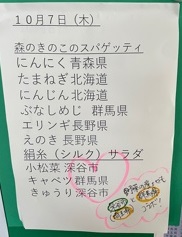 10月7日(木)
森のきのこのスパゲッティ
にんにく青森県
たまねぎ北海道
にんじん北海道
ぶなしめじ 群馬県
エリンギ長野県
えのき 長野県
絹糸(シルク)サラダ
小松菜 深谷市
キャベツ群馬県
きゅうり深谷市